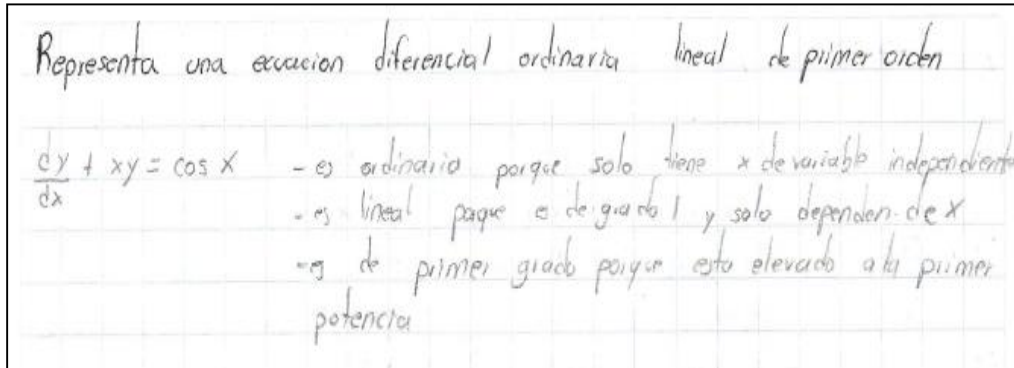 Representa una ecuacion diferencial ordinaria lineal de primer orden
dy/dx + xy = cos x - es ordinaria porque solo tiene x de variable independiente
- es lineal porque es de grado 1 y solo dependen de x
- es de primer grado porque esta elevado a la primer
potencia